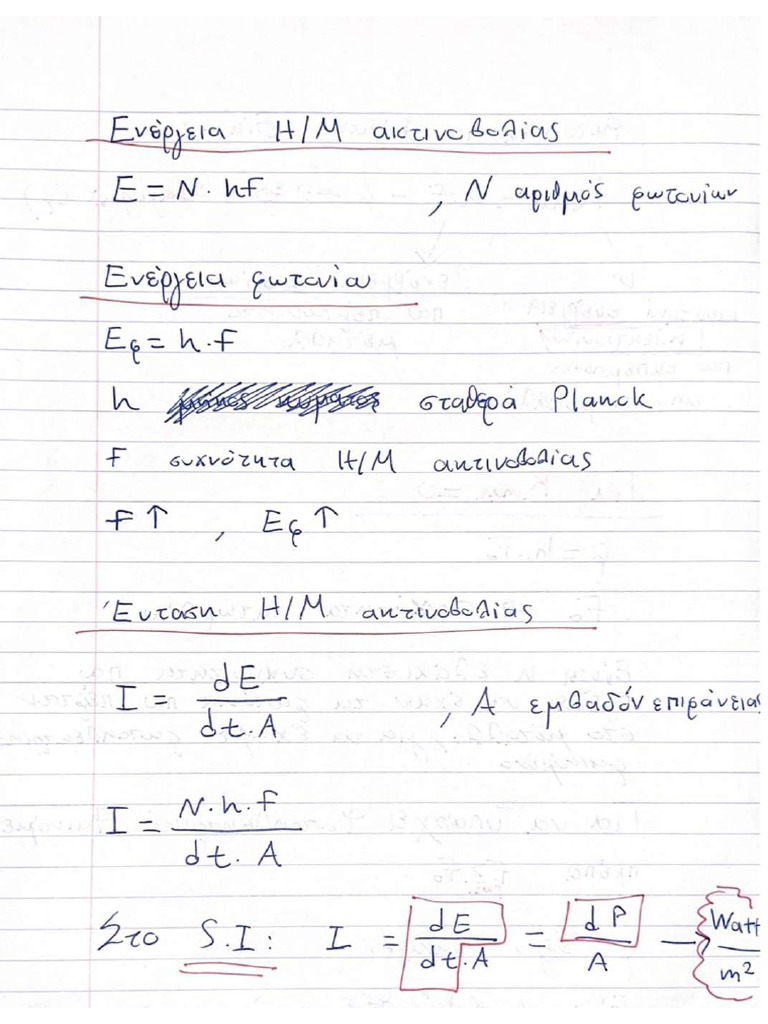 Ενέργεια Η/Μ ακτινοβολίας
E = N · hf , N αριθμός φωτονίων
Ενέργεια φωτονίου
Eφ = h · f
h σταθερά Planck
f συχνότητα Η/Μ ακτινοβολίας
f ↑ , Eφ ↑
Ένταση Η/Μ ακτινοβολίας
I = dE / dt · A , A εμβαδόν επιφάνειας
I = N · h · f / dt · A
Στο S.I: I = dE / dt · A = dP / A → Watt / m²